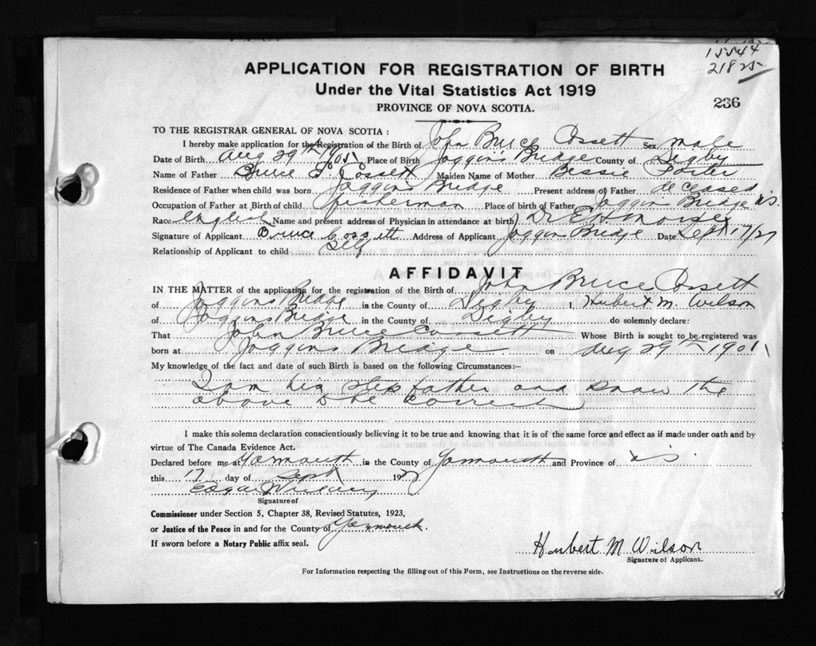 15544
21825
APPLICATION FOR REGISTRATION OF BIRTH
Under the Vital Statistics Act 1919
PROVINCE OF NOVA SCOTIA.
236
TO THE REGISTRAR GENERAL OF NOVA SCOTIA :
I hereby make application for the Registration of the Birth of John Bruce Cossett Sex male
Date of Birth Aug 29th Place of Birth Joggins Bridge County of Digby
Name of Father Bruce Cossett Maiden Name of Mother Bessie Porter
Residence of Father when child was born Joggins Bridge Present address of Father deceased
Occupation of Father at Birth of child fisherman Place of birth of Father Joggins Bridge N.S.
Race English Name and present address of Physician in attendance at birth Dr E H Morse
Signature of Applicant Bruce Cossett Address of Applicant Joggin Bridge Date Sept 17/27
Relationship of Applicant to child Self
AFFIDAVIT
IN THE MATTER of the application for the registration of the Birth of John Bruce Cossett
of Joggins Bridge in the County of Digby I, Hubert M. Wilson
of Joggins Bridge in the County of Digby do solemnly declare:
That John Bruce Cossett Whose Birth is sought to be registered was
born at Joggins Bridge on Aug 29th
My knowledge of the fact and date of such Birth is based on the following Circumstances:—
I am his step father and know the
above to be correct
I make this solemn declaration conscientiously believing it to be true and knowing that it is of the same force and effect as if made under oath and by
virtue of The Canada Evidence Act.
Declared before me at Yarmouth in the County of Yarmouth and Province of N.S.
this 17 day of Sept 1927
Edgar
Signature of
Commissioner under Section 5, Chapter 38, Revised Statutes, 1923,
or Justice of the Peace in and for the County of Yarmouth.
If sworn before a Notary Public affix seal.
Hubert M Wilson
Signature of Applicant.
For Information respecting the filling out of this Form, see Instructions on the reverse side.